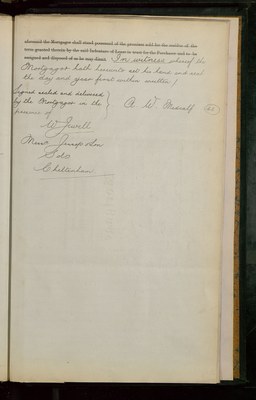 aforesaid the Mortgagee shall stand possessed of the premises sold for the residue of the
term granted thereto by the said Indenture of Lease in trust for the Purchaser and to be
assigned and disposed of as he may direct. In witness whereof the
Mortgagor hath hereunto set his hand and seal
the day and year first within written /
Signed sealed and delivered
by the Mortgagor in the
presence of
A W Metcalf
W Jewell
Solr
Cheltenham